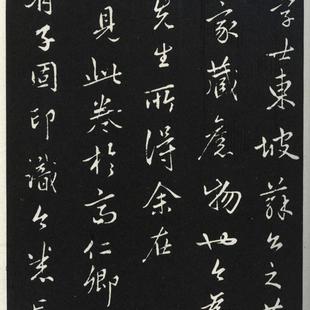 學士東坡蘇公之
家藏舊物也今
先生所得余在
見此卷於高仁卿
有子固印識今悉